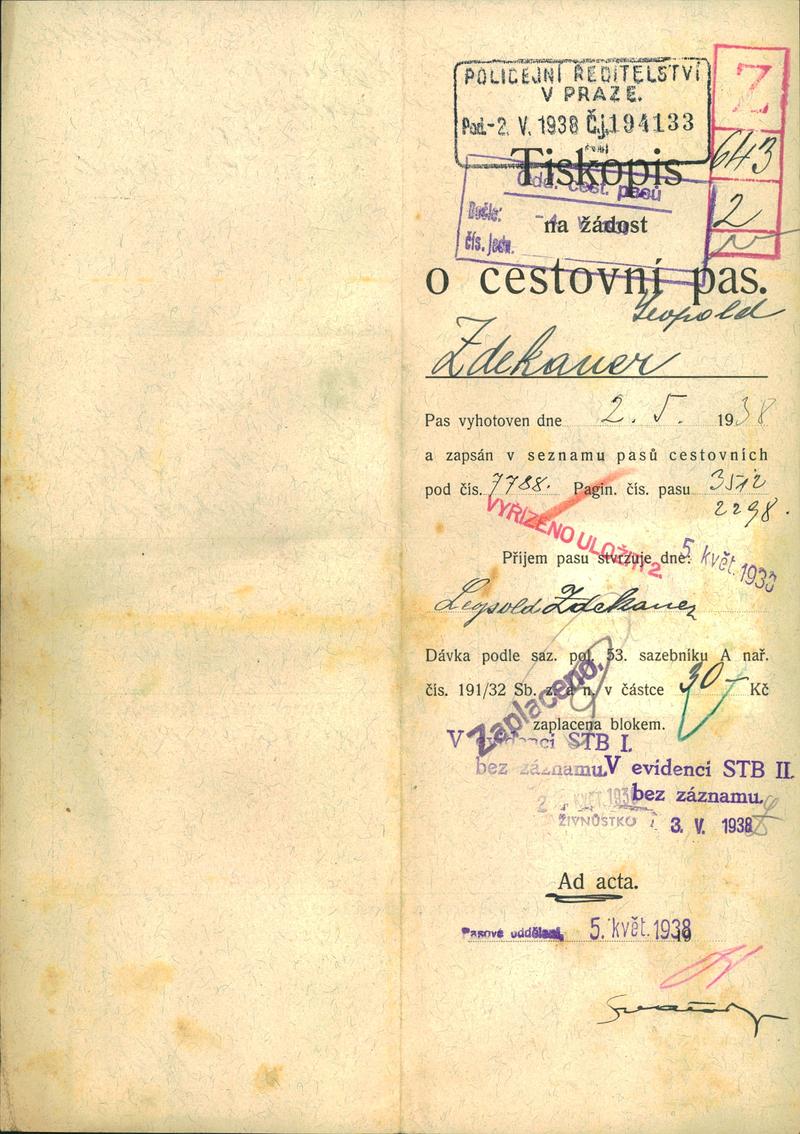 POLICEJNÍ ŘEDITELSTVÍ
V PRAZE.
Pod.-2. V. 1938 Č.j. 194133
Z
643
2
Tiskopis
Odd. cest. pasů
Došlo:
čís. jedn.
na žádost
o cestovní pas.
Leopold
Zdekauer
Pas vyhotoven dne 2. 5. 1938
a zapsán v seznamu pasů cestovních
pod čís. 7788. Pagin. čís. pasu 3512
2298.
VYŘÍZENO ULOŽITI 2.
Příjem pasu stvrzuje dne: 5. květ. 1938
Leopold Zdekauer
Dávka podle saz. pol. 53. sazebníku A nař.
čís. 191/32 Sb. z. a n. v částce 30- Kč
Zaplaceno.
zaplacena blokem.
V evidenci STB I.
bez záznamu.
V evidenci STB II.
bez záznamu.
KVĚT. 1938
ŽIVNOSTKO
3. V. 1938
Ad acta.
Pasové oddělení, 5. květ. 1938
19